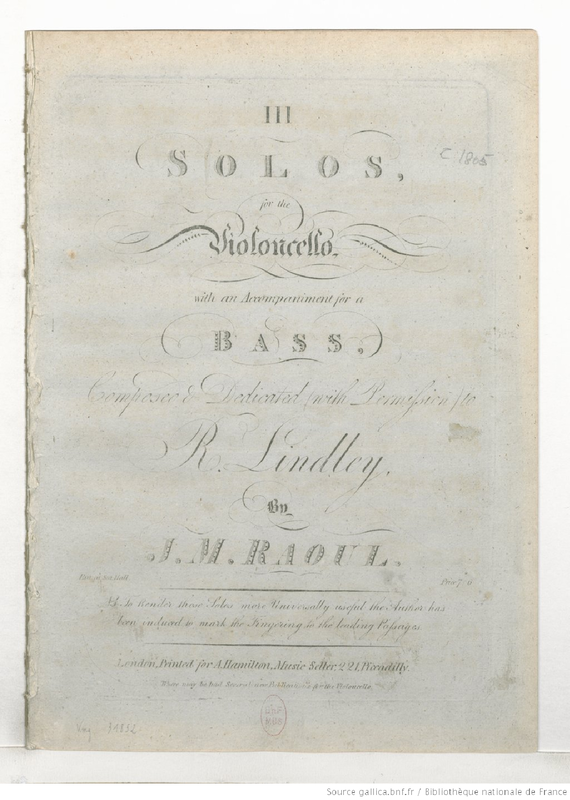 III
SOLOS,
C 1805
for the
Violoncello.
with an Accompaniment for a
BASS,
Composed & Dedicated (with Permission) to
R. Lindley.
By
J. M. RAOUL.
Price 7
To Render these Solos more Universally useful the Author has
been induced to mark the Fingering to the leading Passages
London, Printed for A. Hamilton, Music Seller, 221, Piccadilly.
Where may be had
for the Violoncello.
Source gallica.bnf.fr / Bibliothèque nationale de France